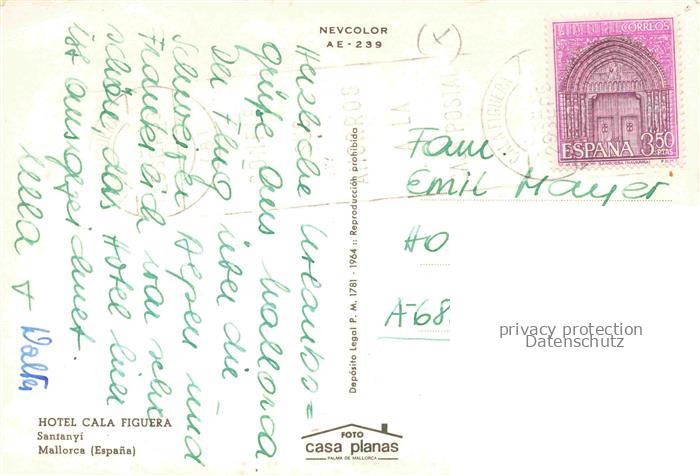 NEVCOLOR
AE-239
Herzliche Urlaubs=
grüße aus Mallorca
Der Flug über die
Schweizer Alpen und
Frankreich war sehr
schön, das Hotel hier
ist ausgezeichnet.
+ Walter
HOTEL CALA FIGUERA
Santanyí
Mallorca (España)
Depósito Legal P. M. 1781 - 1964 :: Reproducción prohibida
FOTO
casa planas
PALMA DE MALLORCA
CORREOS
ESPAÑA 3,50
PTAS
CALA FIGUERA
Fam
Emil Mayer
HO
A-68
privacy protection
Datenschutz